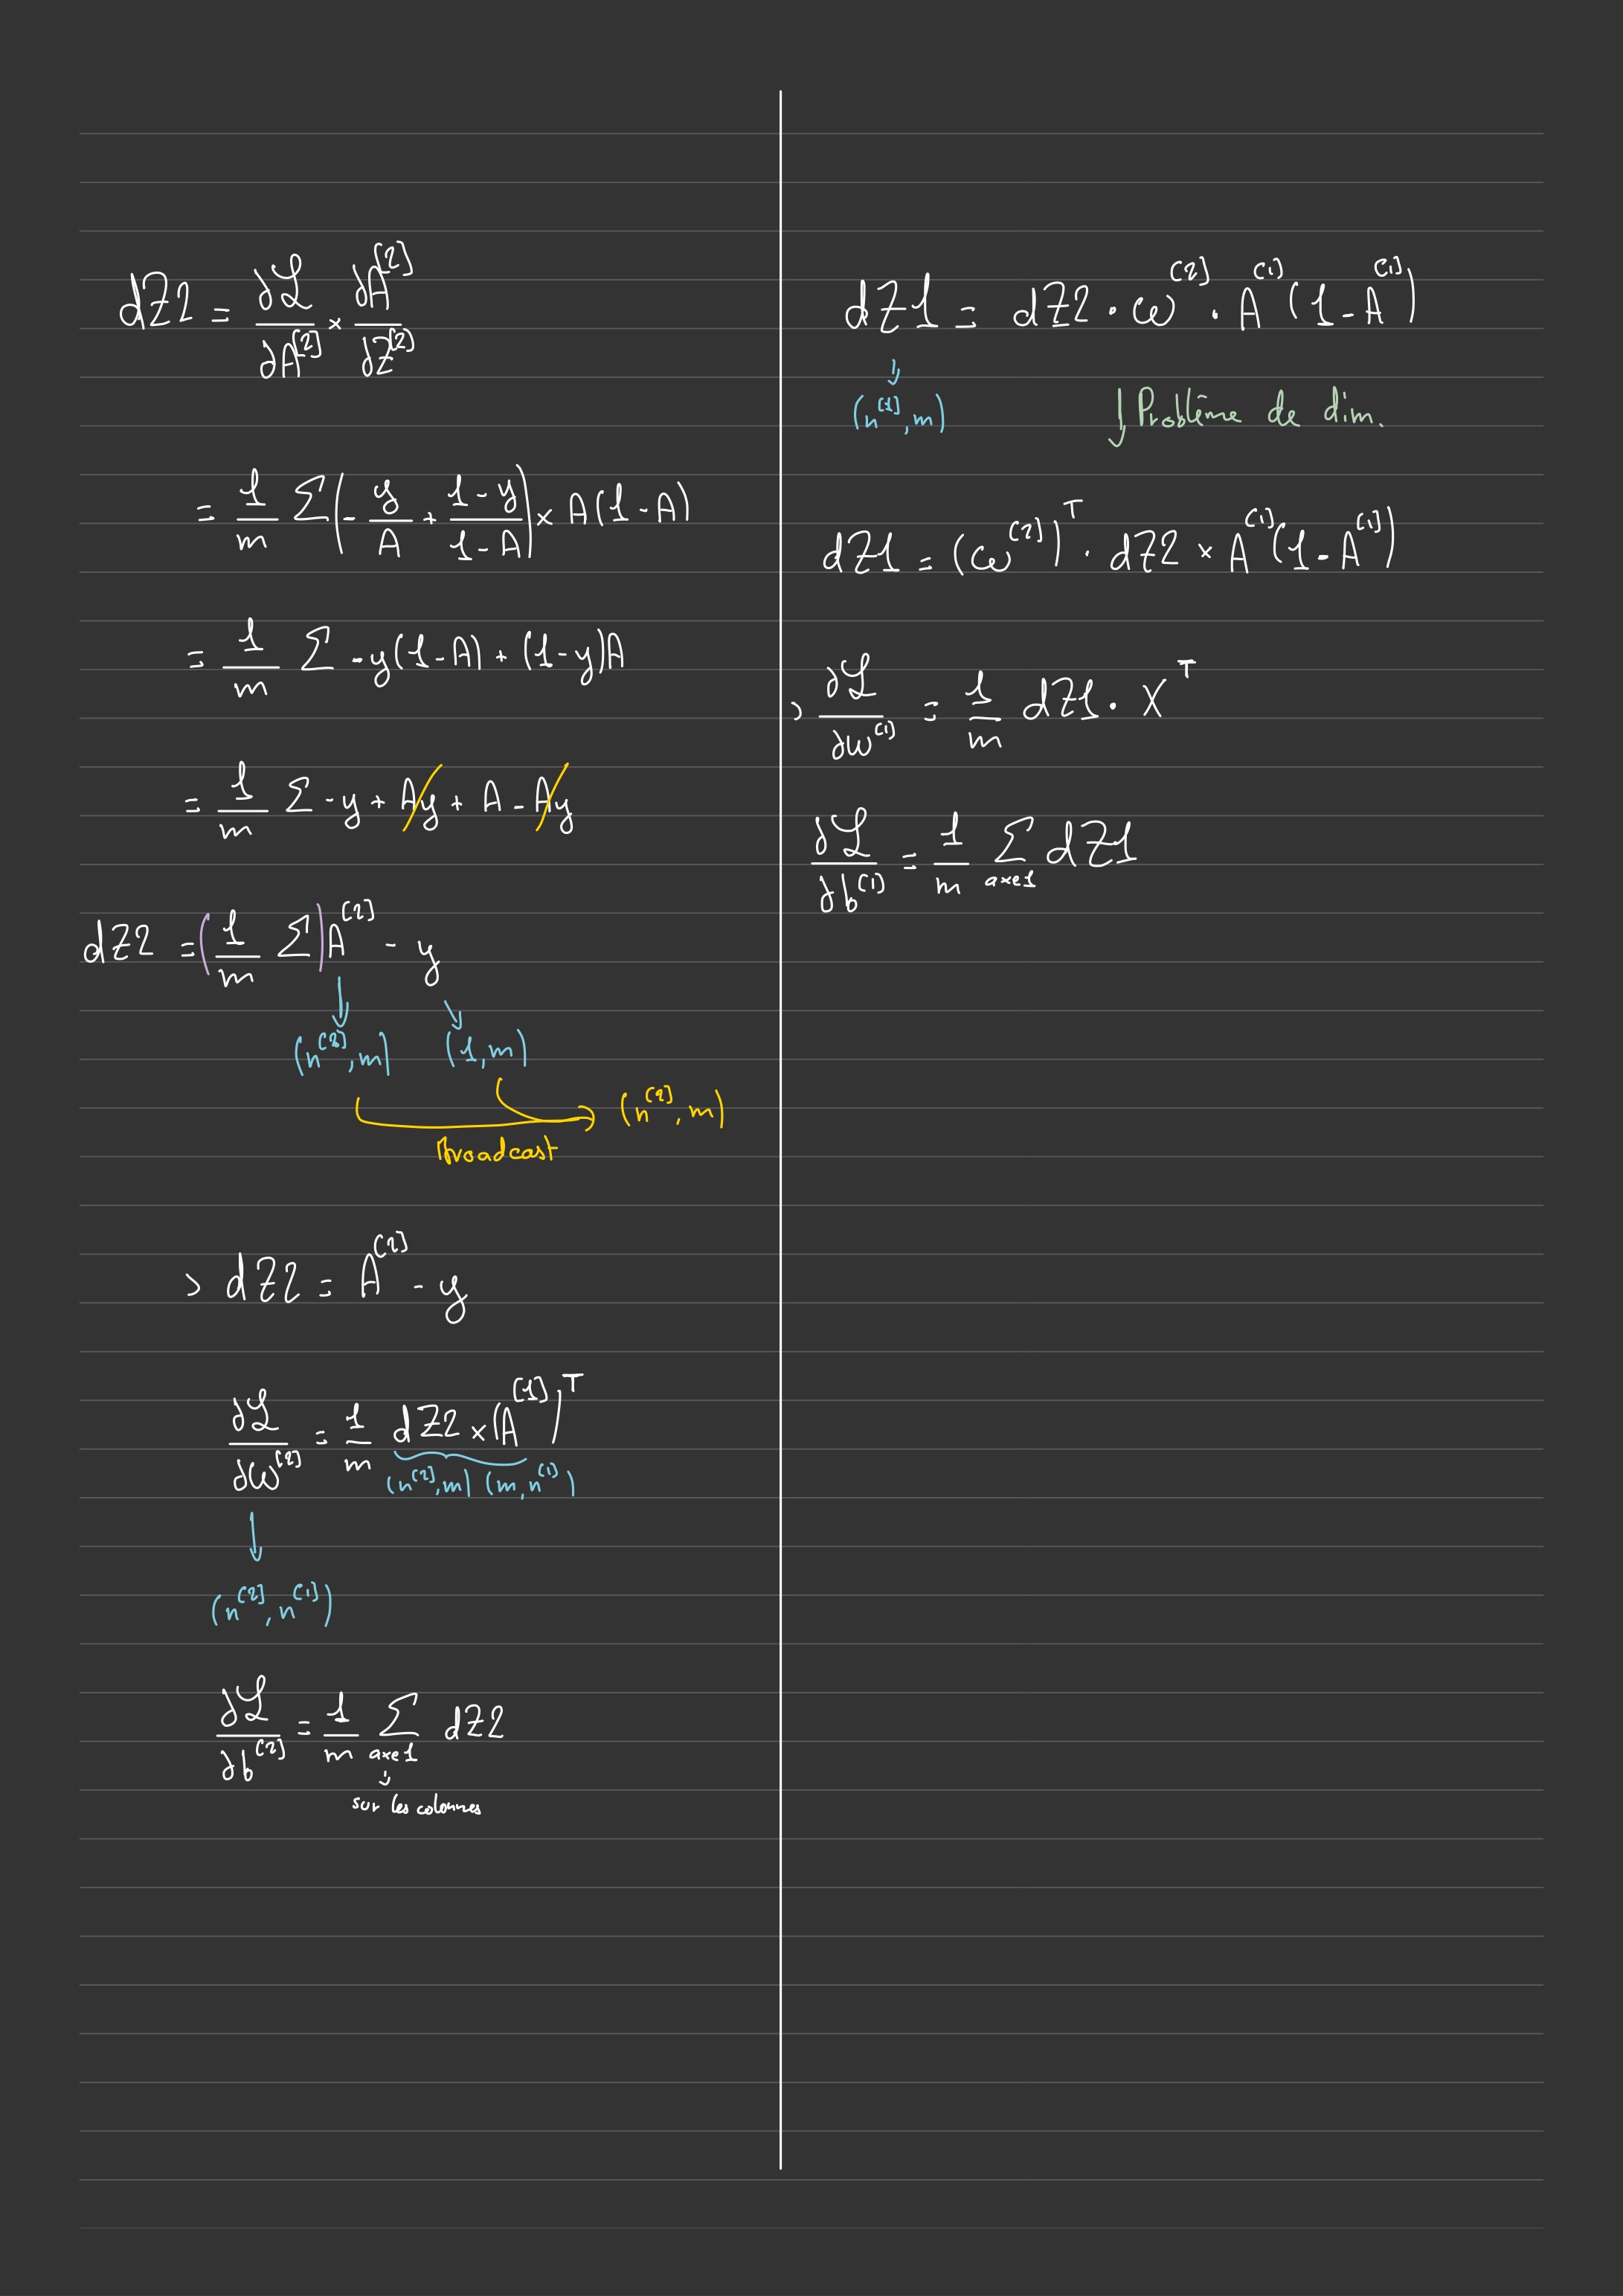 dZ2 = ∂ℒ/∂A^[2] × ∂A^[2]/∂Z^[2]
= 1/m Σ(-y/A + (1-y)/(1-A)) × A(1-A)
= 1/m Σ -y(1-A) + (1-y)A
= 1/m Σ -y + Ay + A - Ay
dZ2 = (1/m Σ) A^[2] - y
(n^[2], m) (1, m)
(n^[2], m)
Broadcast
> dZ2 = A^[2] - y
∂ℒ/∂W^[2] = 1/m dZ2 × (A^[1])^T
(n^[2], m) (m, n^[1])
(n^[2], n^[1])
∂ℒ/∂b^[2] = 1/m Σ dZ2
axe 1
sur les colonnes
dZ1 = dZ2 · W^[2] · A^[1] (1 - A^[1])
(n^[1], m)
Problème de dim.
dZ1 = (W^[2])^T · dZ2 × A^[1] (1 - A^[1])
> ∂ℒ/∂W^[1] = 1/m dZ1 · X^T
∂ℒ/∂b^[1] = 1/m Σ dZ1
axe 1